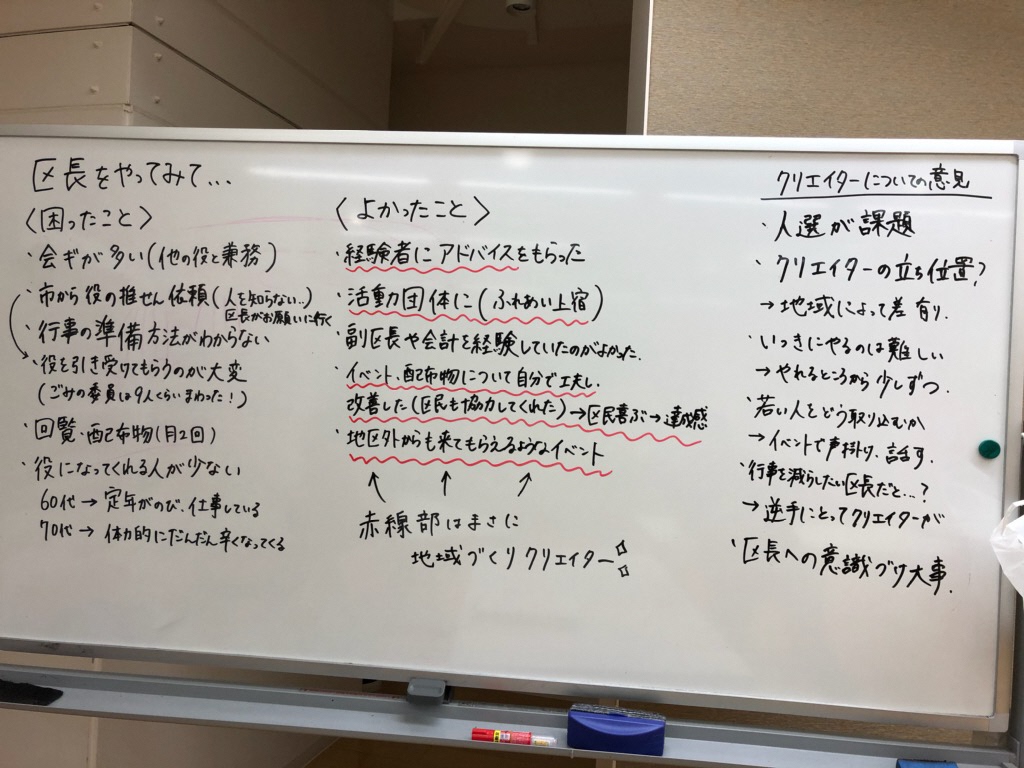 区長をやってみて...
〈困ったこと〉
・会ギが多い(他の役と兼務)
・市から役の推せん依頼(人を知らない..)
区長がお願いに行く
・行事の準備方法がわからない
・役を引き受けてもらうのが大変
(ごみの委員は9人くらいまわった!)
・回覧・配布物(月2回)
・役になってくれる人が少ない
60代→定年がのび、仕事している
70代→体力的にだんだん辛くなってくる
〈よかったこと〉
・経験者にアドバイスをもらった
・活動団体に(ふれあい上宿)
・副区長や会計を経験していたのがよかった.
・イベント、配布物について自分で工夫し、
改善した(区民も協力してくれた)→区民喜ぶ→達成感
・地区外からも来てもらえるようなイベント
↑ ↑ ↑
赤線部はまさに
地域づくりクリエイター
クリエイターについての意見
・人選が課題
・クリエイターの立ち位置?
→地域によって差有り.
・いっきにやるのは難しい
→やれるところから少しずつ.
・若い人をどう取り込むか
→イベントで声掛け、話す.
・行事を減らしたい区長だと...?
→逆手にとってクリエイターが
・区長への意識づけ大事.